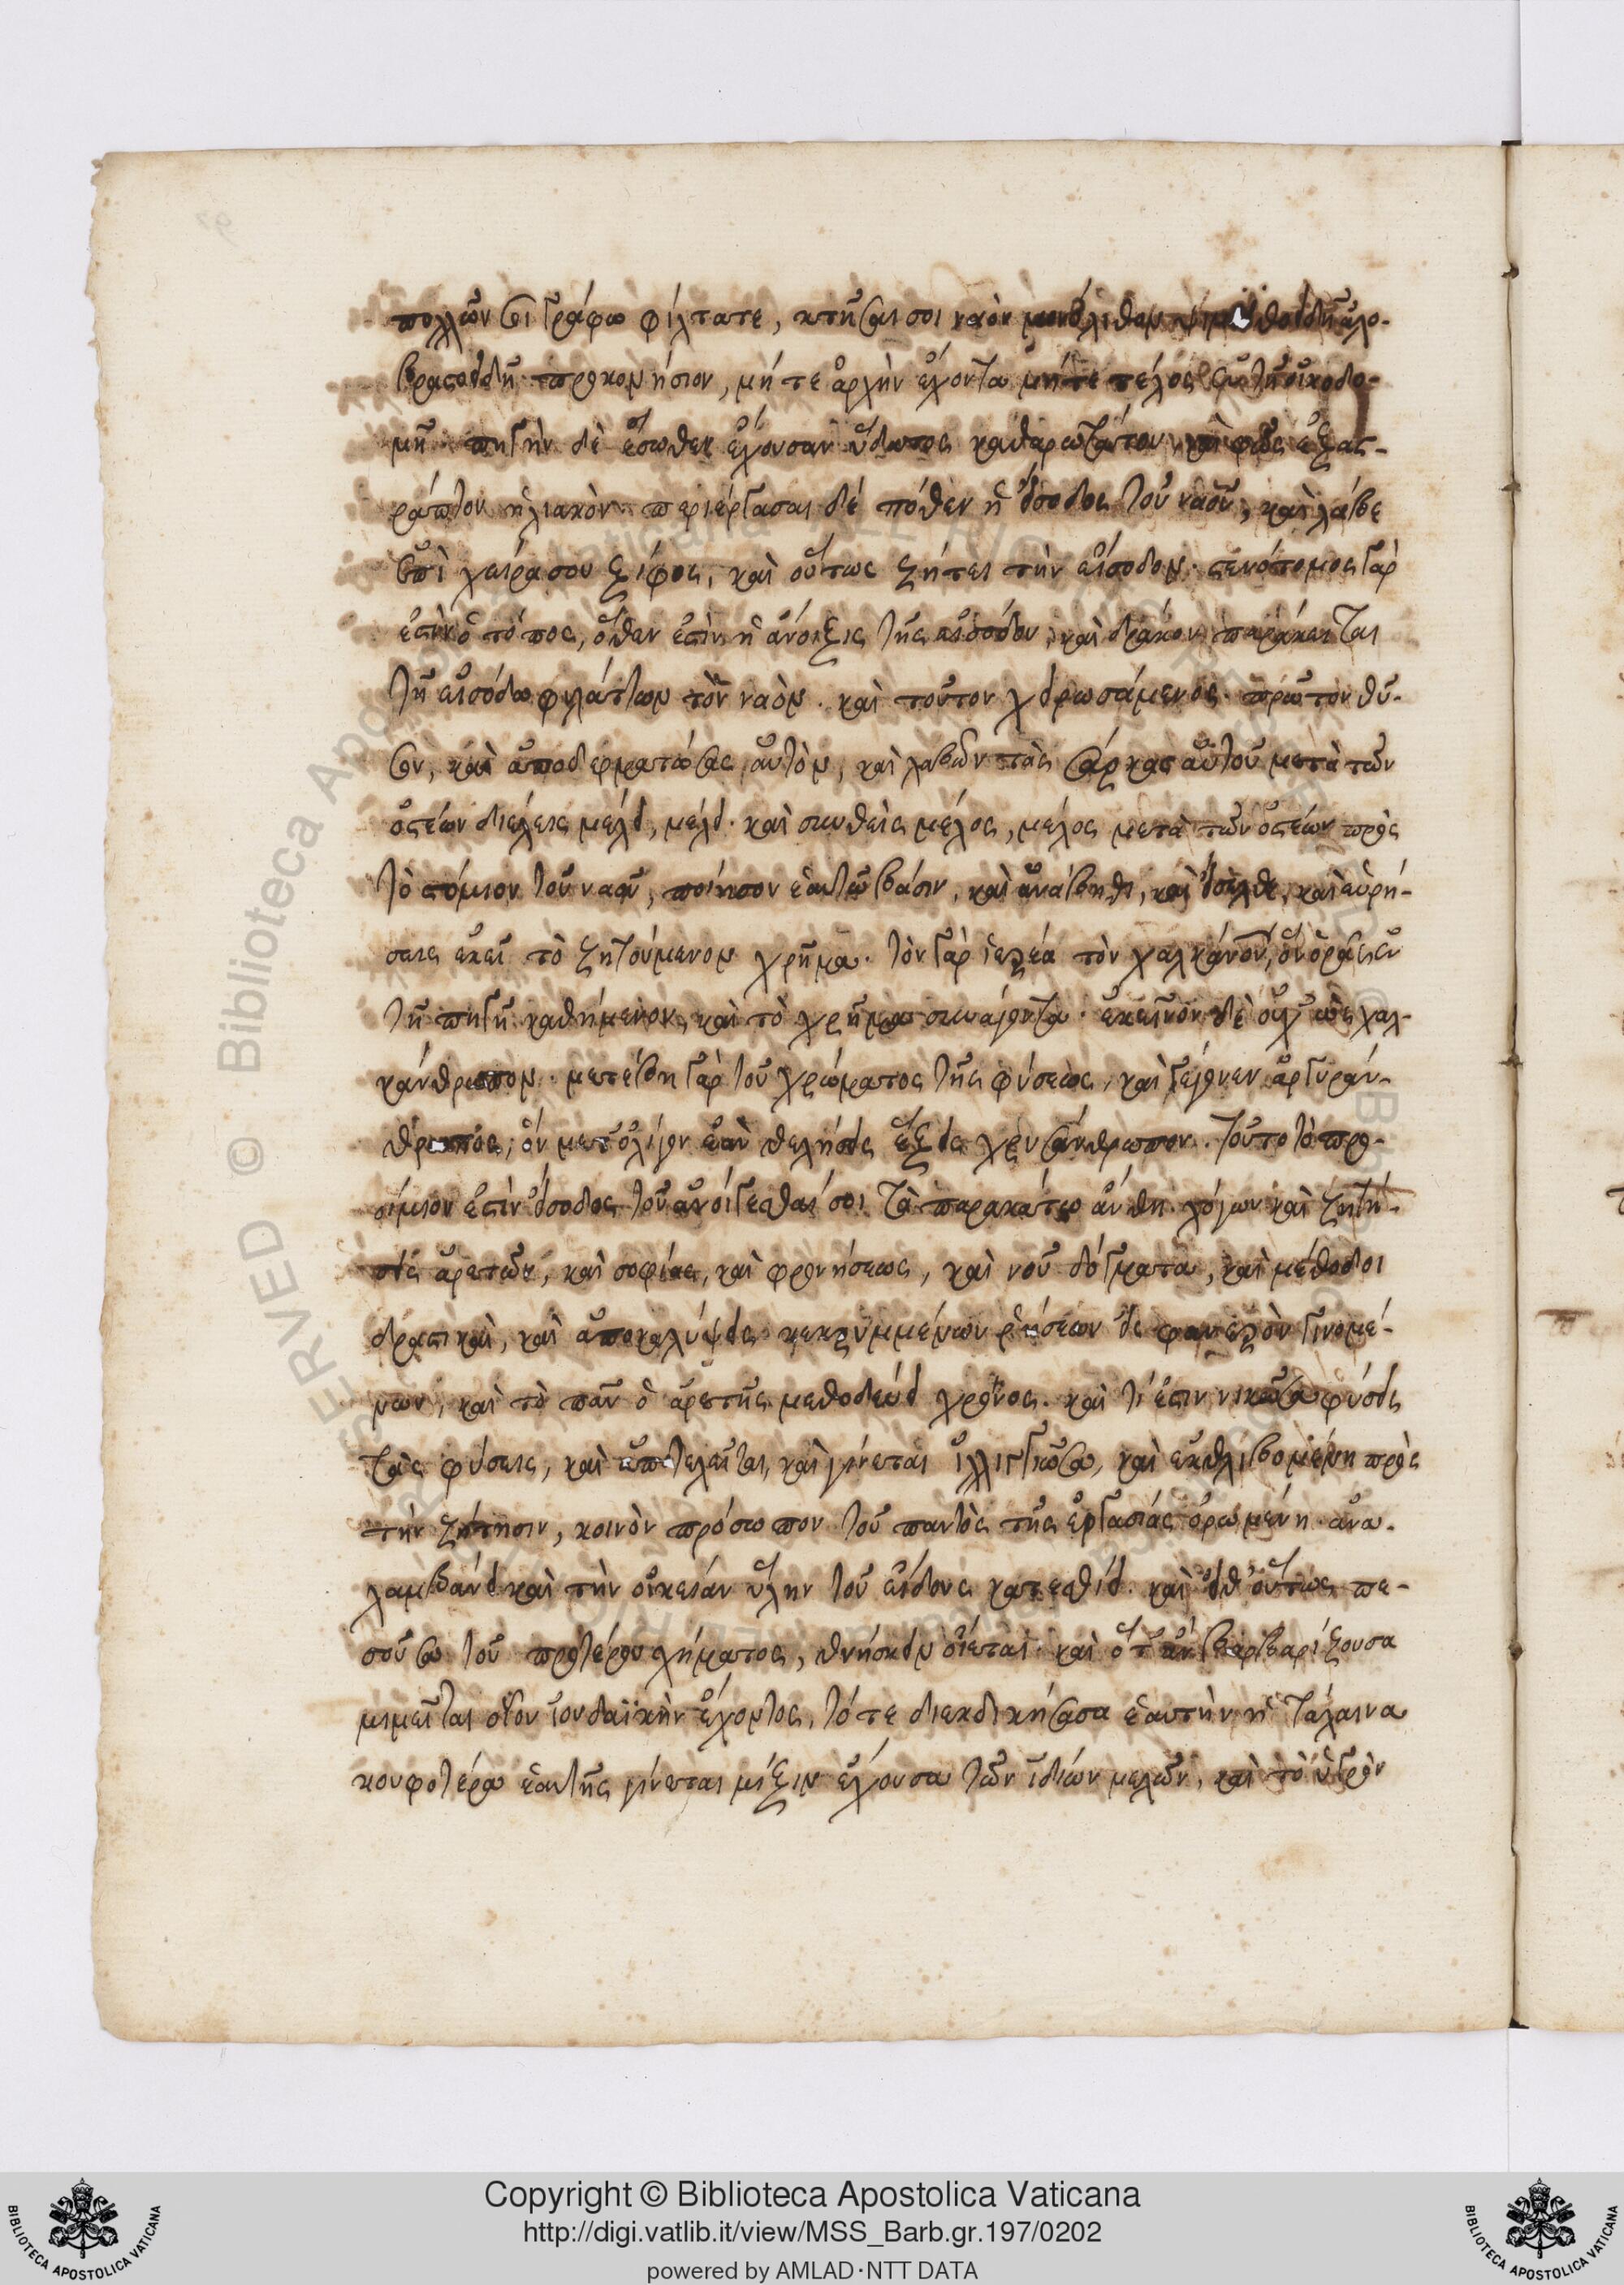 πολλῶν σοι γράφω φίλτατε, κτῆσαί σοι ναὸν μονόλιθον ψιμυθοειδῆ ἀλα-
βαστοειδῆ προκονήσιον, μήτε ἀρχὴν ἔχοντα μήτε τέλος ἐν τῇ οἰκοδο-
μῇ πηγὴν δὲ ἔσωθεν ἔχουσαν ὕδατος καθαρωτάτου, καὶ φῶς ἐξασ-
ράπτον ἡλιακὸν περιέργασαι δὲ πόθεν ἡ εἴσοδος τοῦ ναοῦ, καὶ λάβε
ἐπὶ χεῖρά σου ξίφος, καὶ οὕτως ζήτει τὴν εἴσοδον. στενόστομος γὰρ
ἐστὶν ὁ τόπος, ὅθεν ἐστὶν ἡ ἄνοιξις τῆς εἰσόδου, καὶ δράκον παράκειται
τῇ εἰσόδῳ φυλάττων τὸν ναὸν. καὶ τοῦτον χειρωσάμενος πρῶτον θῦ-
σον, καὶ ἀποδερματώσας αὐτὸν, καὶ λαβὼν τὰς σάρκας αὐτοῦ μετὰ τῶν
ὀστέων διέλεις μέλει, μέλει. καὶ συνθεὶς μέλος, μέλος μετὰ τῶν ὀστέων πρὸς
τὸ στόμιον τοῦ ναοῦ, ποίησον ἑαυτῷ βάσιν, καὶ ἀνάβηθι, καὶ εἴσελθε, καὶ εὑρή-
σεις ἐκεῖ τὸ ζητούμενον χρῆμα. τὸν γὰρ ἱερέα τὸν χαλκάνον, ὃν ὁρᾷς ἐν
τῇ πηγῇ καθήμενον, καὶ τὸ χρῆμα συνάγοντα. ἐκεῖνον δὲ οὐχ ὡς χαλ-
κάνθρωπον. μετέβη γὰρ τοῦ χρώματος τῆς φύσεως, καὶ γέγονεν ἀργυράν-
θρωπος, ὃν μετ' ὀλίγον ἐὰν θελήσεις ἕξεις χρυσάνθρωπον. τοῦτο τὸ προ-
οίμιον ἐστὶν εἴσοδος τοῦ ἀνοίγεσθαί σοι τὰ παρακάτω ἄνθη λόγων καὶ ζητή-
σεις ἀρετῶν, καὶ σοφίας, καὶ φρονήσεως, καὶ νοῦ δόγματα, καὶ μέθοδοι
δραστικαὶ, καὶ ἀποκαλύψεις κεκρυμμένων ῥήσεων εἰς φανερὸν γινομέ-
νων, καὶ τὸ πᾶν ὁ ἀρετῆς μεθοδεύει χρόνος. καὶ τί ἐστιν νικῶσα φύσεις
τὰς φύσεις, καὶ ἀποτελεῖται, καὶ γίνεται ἰλλιγγιῶσα, καὶ ἐκθλιβομένη πρὸς
τὴν ζήτησιν, κοινὸν πρόσωπον τοῦ παντὸς τῆς ἐργασίας ὁρωμένη ἀνα-
λαμβάνει καὶ τὴν οἰκείαν ὕλην τοῦ εἴδους κατεσθίει. καὶ εἶθ' οὕτως πε-
σοῦσα τοῦ προτέρου σχήματος, θνήσκειν οἴεται. καὶ ὅτ' ἂν βαρβαρίζουσα
μιμεῖται ιουδαϊκὴν ἔχοντος, τότε διεκδικήσασα ἑαυτὴν ἡ τάλαινα
κουφοτέρα ἑαυτῆς γίνεται μίξιν ἔχουσα τῶν ἰδίων μελῶν, καὶ τὸ ὑγρὸν
Copyright © Biblioteca Apostolica Vaticana
http://digi.vatlib.it/view/MSS_Barb.gr.197/0202
powered by AMLAD·NTT DATA